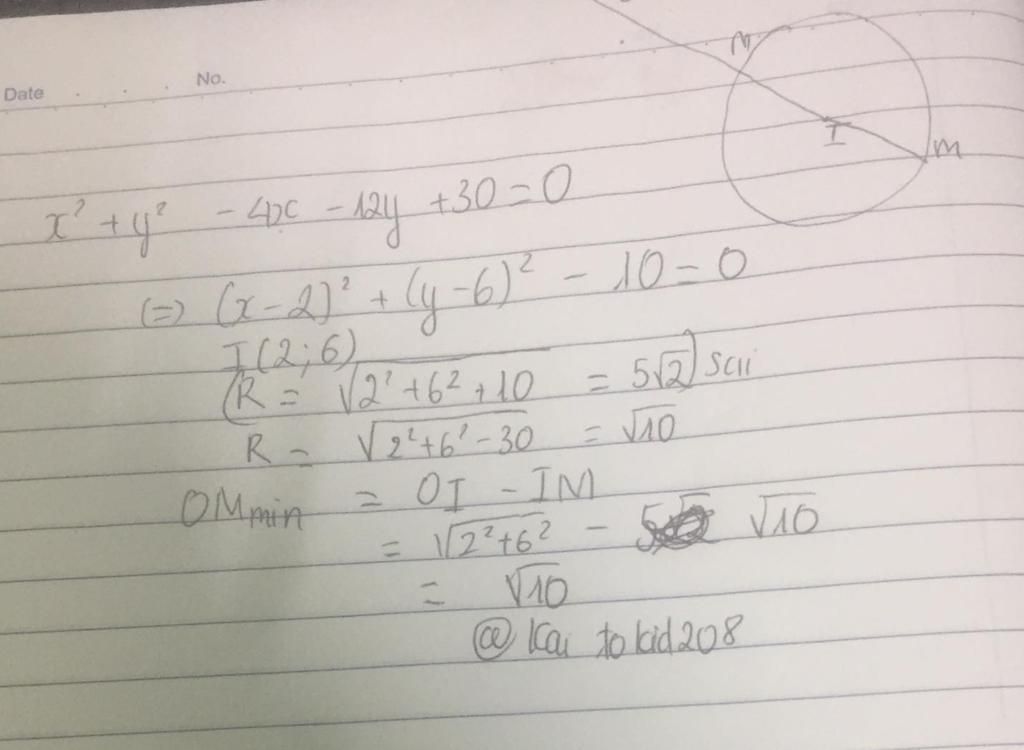 Date No.
M
I
M
x² + y² - 4x - 12y + 30 = 0
(=) (x - 2)² + (y - 6)² - 10 = 0
I (2; 6)
(R = √(2² + 6² + 10) = 5√2) sai
R = √(2² + 6² - 30) = √10
OM min = OI - IM
= √(2² + 6²) - √10
= √10
@ Kai to kid 208